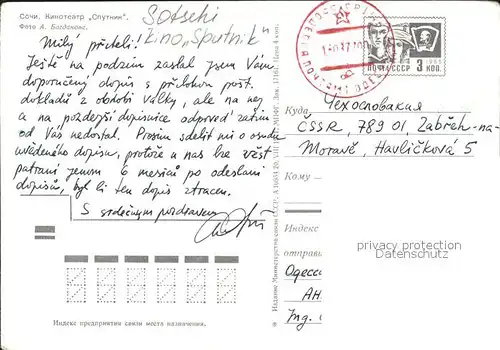 Сочи. Кинотеатр „Спутник".
Фото А. Богданова.
Sotschi
kino „Sputnik"
Milý příteli!
Ještě na podzim zaslal jsem Vám
doporučený dopis s přílohou pošt.
dokladů z období války, ale na něj
a na pozdější dopisnice odpověď zatím
od Vás nedostal. Prosím sdělit mi o osudu
uvedeného dopisu, protože u nás lze vést
pátrání jenom 6 měsíců po odeslání
dopisů, byl li ten dopis ztracen.
S srdečným pozdravem
Индекс предприятия связи места назначения.
Издание Министерства связи СССР.
ПОЧТА СССР 3 КОП.
Куда
Чехословакия
ČSSR, 789 01, Zábřeh-na-
Moravě, Havlíčková 5
Кому
privacy protection
Datenschutz
отправи
Одесса
АН
Ing.